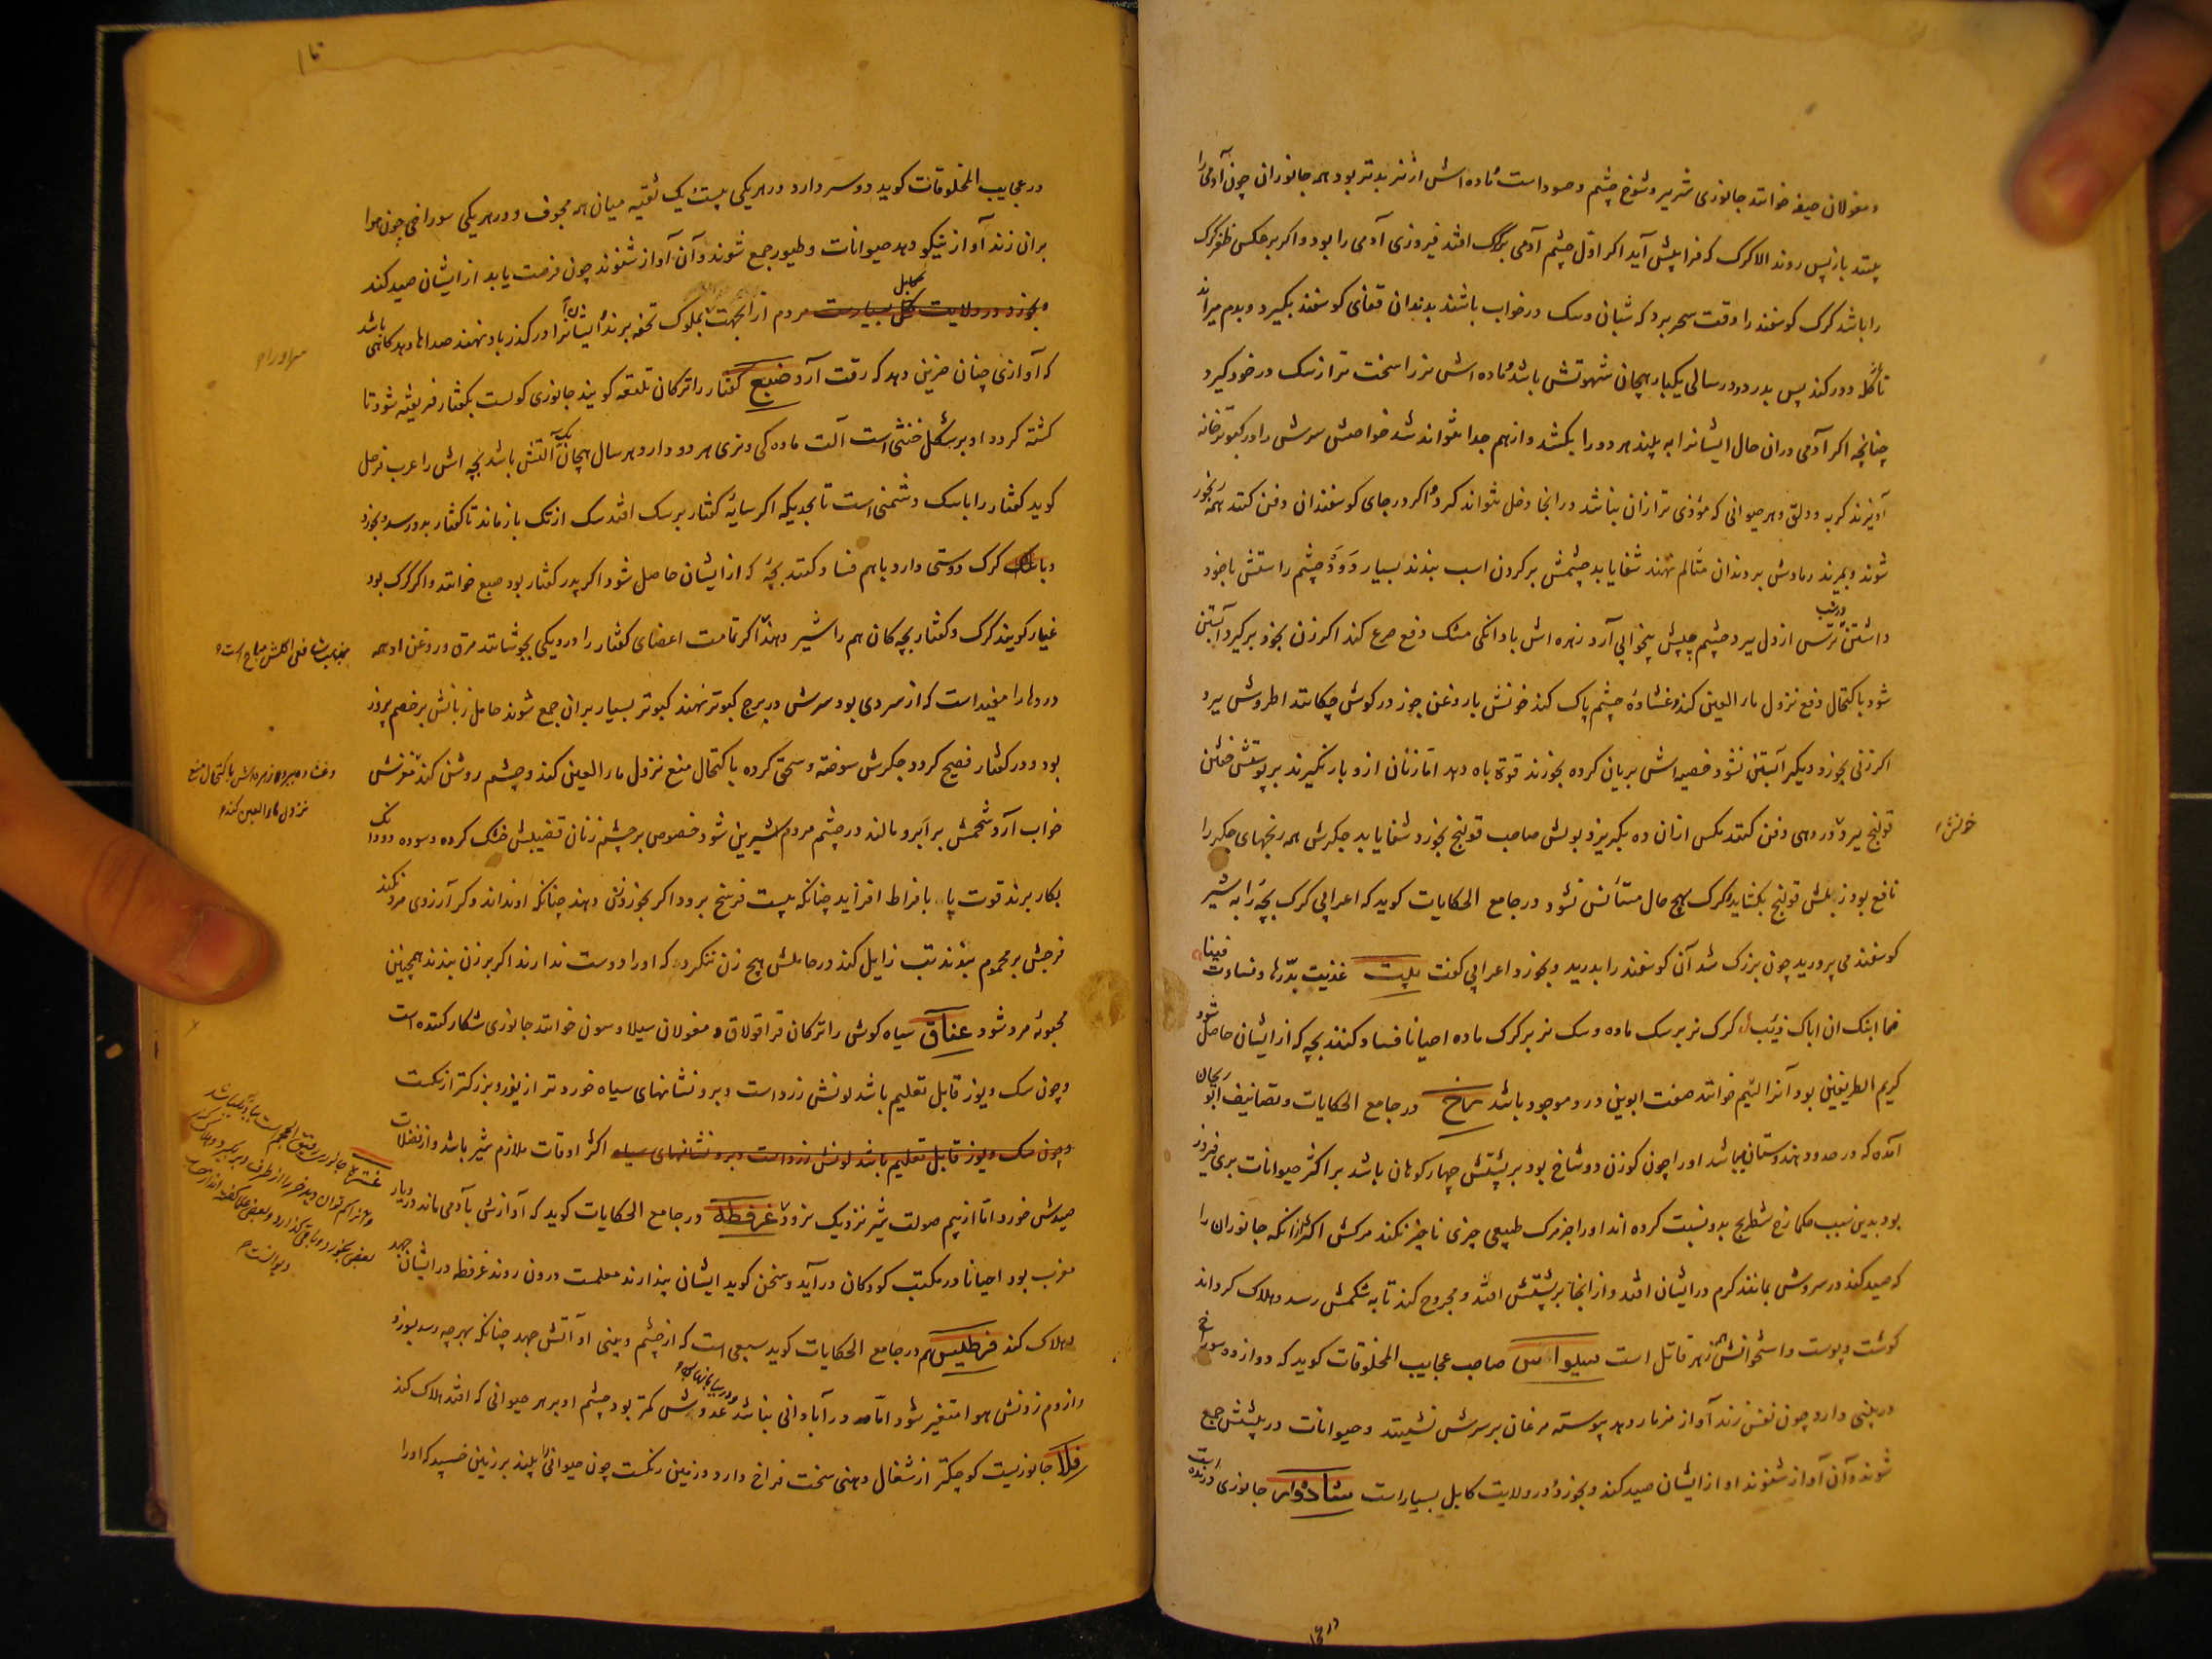 و مغولان جیغه خوانند جانوری شریر و شوخ چشم و حسود است و ماده اش از نر بدتر بود همه جانوران چون آدمی را
بینند باز پس روند الا گرگ که فرا پیش آید اگر اول چشم آدمی بر گرگ افتد فیروزی آدمی را بود و اگر بر عکس ظفر گرگ
را باشد گرگ گوسفند را وقت سحر برد که شبان و سگ در خواب باشند بدندان قفای گوسفند بگیرد و بدم میراند
تا از گله دور کند پس بدرد و در سالی یکبار هیجان شهوتش باشد و ماده اش نر را سخت تر از سگ در خود گیرد
چنانچه اگر آدمی در ان حال ایشانرا به بیند هر دو را بکشد و از هم جدا نتواند شد خواصش سرش را در کبوترخانه
آویزند گربه و دلق و هر حیوانی که موذی تر از ان نباشد در انجا دخل نتواند کرد و اگر در جای گوسفندان دفن کنند همه رنجور
شوند و بمیرند رمادش بر دندان متالم نهند شفا یابد چشمش بر گردن اسب بندند بسیار دود چشم راستش با خود
داشتن در شب ترس از دل ببرد چشم چپش بیخوابی آرد زهره اش با دانکی مشک دفع صرع کند اگر زن بخود برگیرد آبستن
شود باکتحال دفع نزول ماء العین کند و غشاوۀ چشم پاک کند خونش با روغن جوز در گوش چکانند اطروش ببرد
اگر زنی بخورد دیگر آبستن نشود خصیه اش بریان کرده بخورند قوة باه دهد اما زنان ازو بار نگیرند بر پوستش خفتن
قولنج ببرد در دهی دفن کنند مگس از ان ده بگریزد بولش صاحب قولنج بخورد شفا یابد جگرش همه رنجهای جگر را
خونش
نافع بود زبلش قولنج بگشاید و گرگ بهیچ حال مستأنس نشود در جامع الحکایات گوید که اعرابی گرگ بچۀ را به شیر
گوسفند می پرورید چون بزرگ شد آن گوسفند را بدرید و بخورد اعرابی گفت بیت غذیت بدرها و نساوت فینا
فما انبتک ان اباک ذیب گرگ نر بر سگ ماده و سگ نر بر گرگ ماده احیانا فساد کنند بچه که از ایشان حاصل شود
کریم الطرفین بود آنرا لئیم خوانند صفت ابوین درو موجود باشد رخ در جامع الحکایات و تصانیف ابو ریحان
آمده که در حدود هندوستان میباشد او را چون گوزن دو شاخ بود بر پشتش چهار کوهان باشد بر اکثر حیوانات بری فیروز
بود بدین سبب حکما رخ شطرنج بدو نسبت کرده اند او را جز مرگ طبیعی چیزی ناچیز نکند مرگش اکثر از آنکه جانوران را
که صید کند در سروش بمانند کرم در ایشان افتد و از انجا بر پشتش افتد و مجروح کند تا به شکمش رسد و هلاک گرداند
گوشت و پوست و استخوانش همه زهر قاتل است سیراس صاحب عجایب المخلوقات گوید که دوازده سوراخ
در بینی دارد چون نفس زند آواز مزمار دهد پیوسته مرغان بر سرش نشینند و حیوانات در پیشش جمع
شوند و آن آواز شنوند او از ایشان صید کند و بخورد و در ولایت کابل بسیار است شادوار جانوری درنده است
در عجا
در عجایب المخلوقات گوید دو سر دارد در هر یکی بیست و یک ثقبه میان همه مجوف و در هر یکی سوراخی چون هوا
بران زند آواز نیکو دهد حیوانات و طیور جمع شوند و آن آواز شنوند چون فرصت یابد از ایشان صید کند
بخورد در ولایت کابل بسیارست مردم از انجهت بملوک تحفه برند و ایشان آنرا در گذر باد نهند صداها دهد گاهی باشد
که آوازی چنان حزین دهد که رقت آرد ضبع کفتار را ترکان تلعقه گویند جانوری گولست بگفتار فریفته شود تا
کشته گردد او بر شکل خنثی است آلت ماده گی و نری هر دو دارد هر سال هیجان یک آلتش باشد بچه اش را عرب فرعل
گوید کفتار را با سگ دشمنی است تا بحدیکه اگر سایۀ کفتار بر سگ افتد سگ از تک باز ماند تا کفتار بدو رسد و بخورد
و با گرگ دوستی دارد با هم فساد کنند بچۀ که از ایشان حاصل شود اگر پدر کفتار بود سمع خوانند و اگر گرگ بود
غبار گویند گرگ و کفتار بچه گان هم را شیر دهند اگر تمامت اعضای کفتار را در دیگی بجوشانند مرق و روغن او همه
بمذهب شافعی اکلش مباح است
دردها را مفید است که از سردی بود سرش در برج کبوتر نهند کبوتر بسیار بران جمع شوند حامل زبانش بر خصم پیروز
بود و در گفتار فصیح گردد جگرش سوخته و سحق کرده باکتحال منع نزول ماء العین کند و چشم روشن کند مغزش
و غشاوه ببرد و زهره اش باکتحال منع
نزول ماء العین کند
خواب آرد شحمش بر ابرو مالند در چشم مردم شیرین شود خصوص بر چشم زنان قضیبش خشک کرده و سوده دو دانک
بکار برند قوت باه بافراط افزاید چنانکه بیست فرسخ برود اگر بخورد زنی دهند چنانکه او نداند دگر آرزوی مرد نکند
فرجش بر محموم بندند تب زایل کند در حاملش هیچ زن ننگرد که او را دوست ندارند اگر بر زن بندند همچنین
محبوبۀ مرد شود عناق سیاه گوش را ترکان قراقولاق و مغولان سیلاوسون خوانند جانوری شکار کننده است
و چون سگ و یوز قابل تعلیم باشد لونش زرد است و برو نشانهای سیاه خورد تر از یوز و بزرگتر از سگست
و چون سگ و یوز قابل تعلیم باشد لونش زرد است و برو نشانهای سیاه اکثر اوقات ملازم شیر باشد و از فضلات
صیدش خورد اما از بیم صولت شیر نزدیک نرود غرفطه در جامع الحکایات گوید که آوازش بآدمی ماند در دیار
مغرب بود احیانا در مکتب کودکان در آید و سخن گوید ایشان پندارند معلمست درون روند غرفطه در ایشان جهد
و هلاک کند فرطلیس هم در جامع الحکایات گوید سبعی است که از چشم و بینی او آتش جهد چنانکه بهر چه رسد بسوزد
و از دم زدنش هوا متغیر شود اما در آبادانی نباشد و در بیابانها باشد عدوش کمتر بود چشم او بر هر حیوانی که افتد هلاک کند
فلا جانوریست کوچکتر از شغال دهنی سخت فراخ دارد و زمین رنگست چون حیوانی را بیند بر زمین خسپد که او را